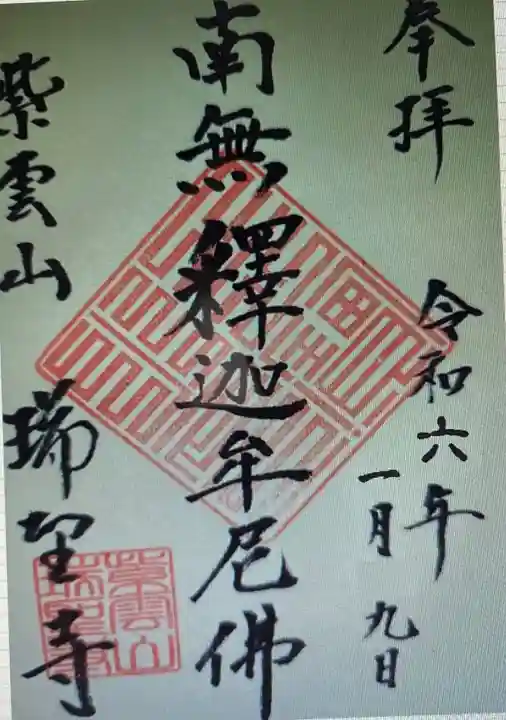 奉拝
令和六年
一月九日
南無釋迦牟尼佛
紫雲山 瑞聖寺
紫雲山
瑞聖寺